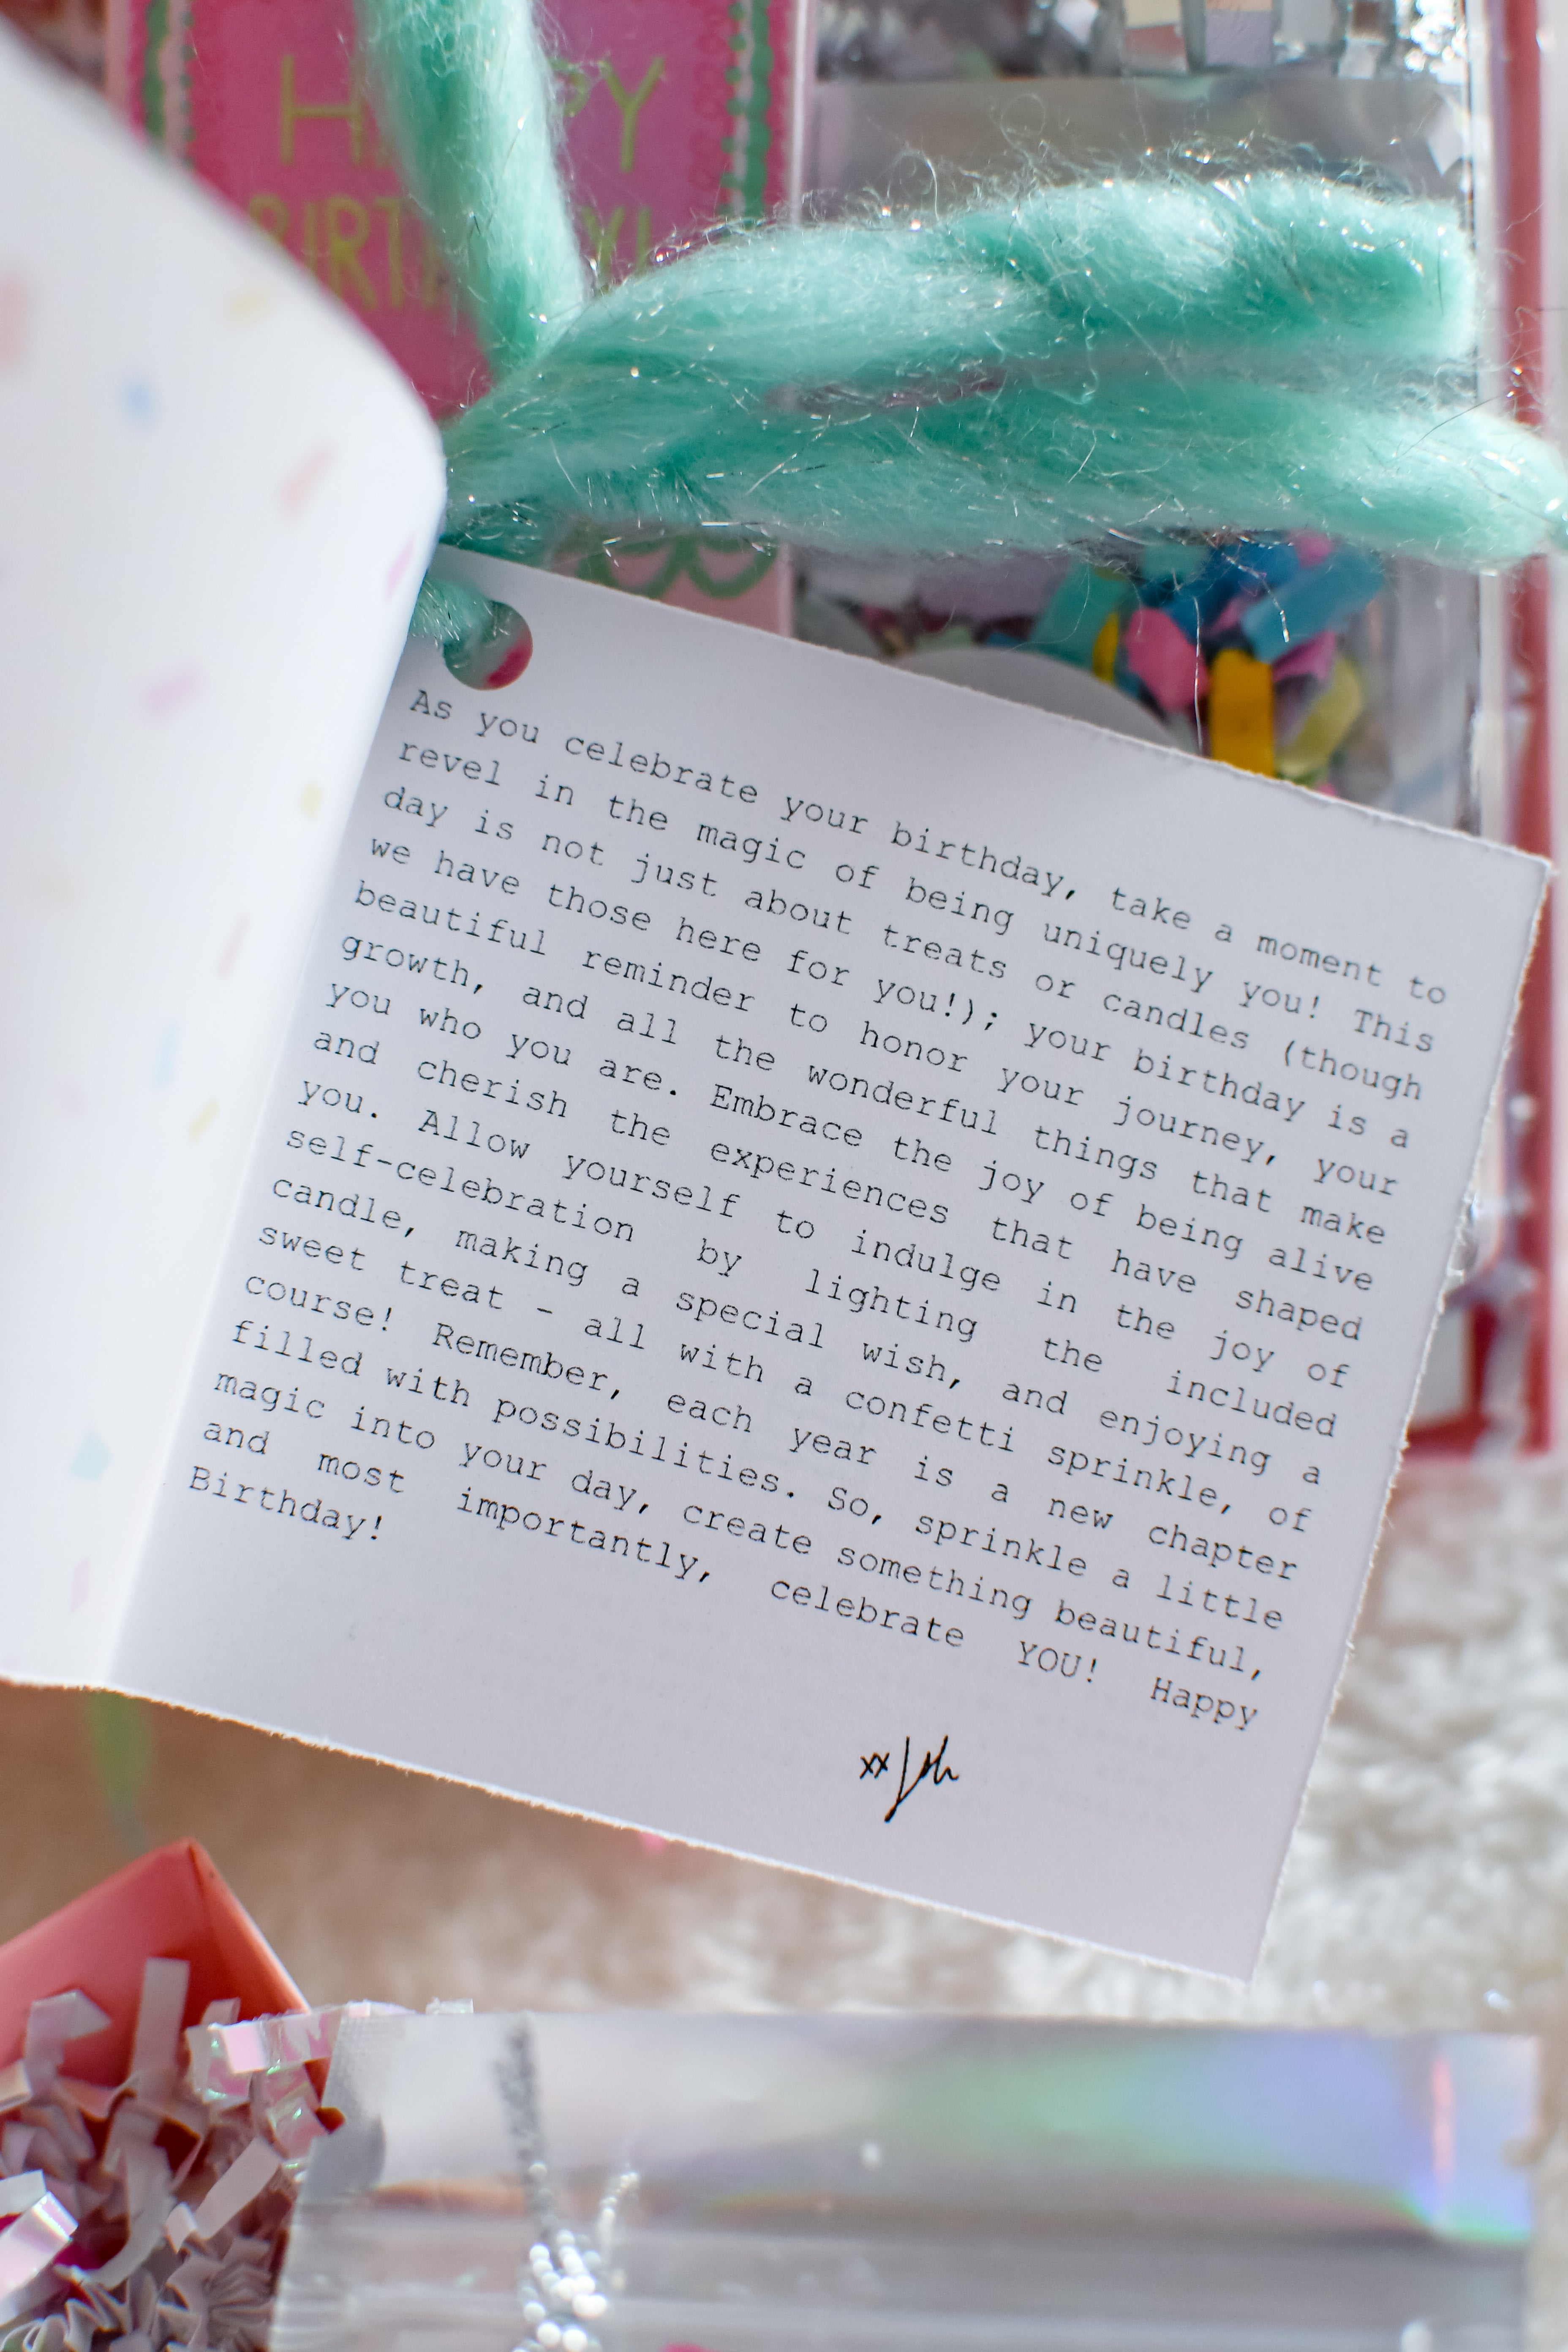 As you celebrate your birthday, take a moment to
revel in the magic of being uniquely you! This
day is not just about treats or candles (though
we have those here for you!); your birthday is a
beautiful reminder to honor your journey, your
growth, and all the wonderful things that make
you who you are. Embrace the joy of being alive
and cherish the experiences that have shaped
you. Allow yourself to indulge in the joy of
self-celebration by lighting the included
candle, making a special wish, and enjoying a
sweet treat - all with a confetti sprinkle, of
course! Remember, each year is a new chapter
filled with possibilities. So, sprinkle a little
magic into your day, create something beautiful,
and most importantly, celebrate YOU! Happy
Birthday!
xx